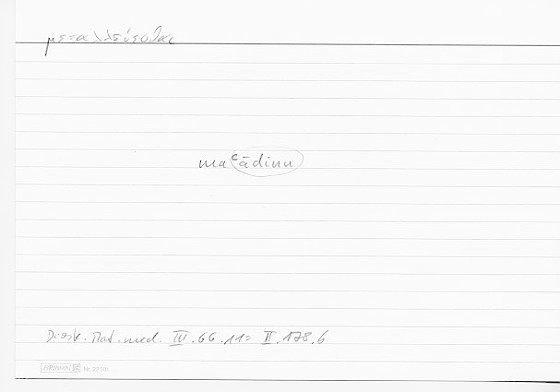 μεταλλεύεσθαι
maʿādinu
Diosk. Mat. med. IV. 66. 11 = II. 178. 6